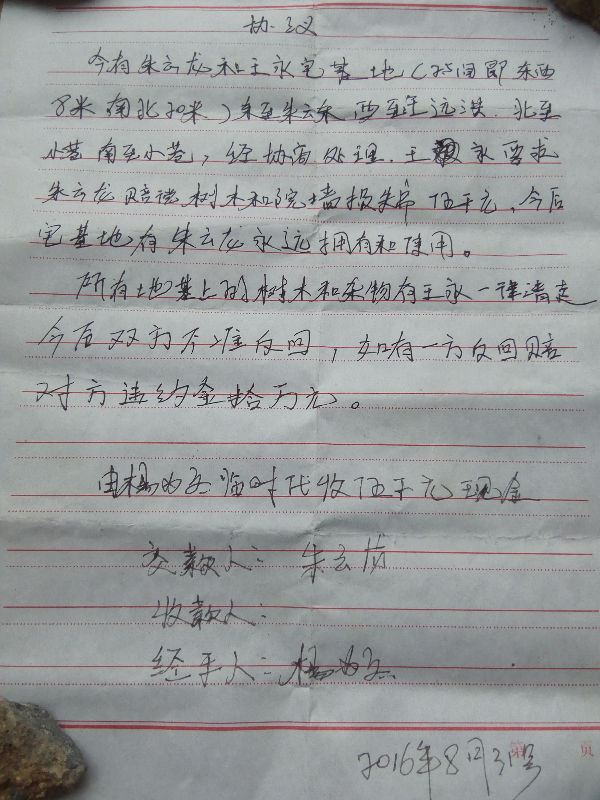 协议
今有朱云龙和王永宅基地(25间即东西
8米南北20米)东至朱云东 西至 远洪.北至
小巷南至小巷,经协商处理.王 永要求
朱云龙赔偿树木和院墙损失 伍千元,今后
宅基地有朱云龙永远拥有和使用。
所有地基上的树木和杂物有王永一律清走
今后双方不准反回,如有一方反回赔
对方违约金拾万元。
由杨 临时代收伍千元现金
交款人: 朱云
收款人:
经手人: 杨
2016年8月31号
第 页